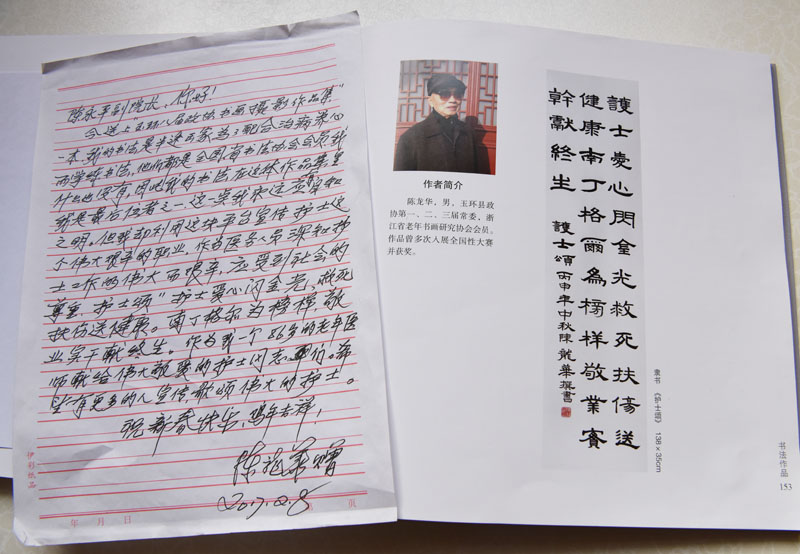 陈永平副院长,你好!
今送上"玉环八届政协书画摄影作品集"
一本,我的书法是半途出家为了配合治病养心
而学书法,他们都是全国省书法协会会员,我
什么也没有,因此我的书法在这本作品集里
就是最后位者之一,这一点我永远
之明。但我却利用这块平台宣传护士这
个伟大艰辛的职业,作为医务人员深知护
士工作的伟大而艰辛,应受到社会的
尊重,护士颂"护士爱心闪金光,救死
扶伤送健康。南丁格尔为榜样,敬
业实干献终生。作为我一个86岁的老年医
师献给伟大敬爱的护士同志们。希
望有更多的人宣传,歌颂伟大的护士。
祝新春快乐,鸡年吉祥!
陈龙华赠
2017.2.8
伊彩纸品
年 月 日 第 页
作者简介
陈龙华,男,玉环县政
协第一、二、三届常委,浙
江省老年书画研究协会会员。
作品曾多次入展全国性大赛
并获奖。
護士愛心閃金光救死扶傷送
健康南丁格爾為榜樣敬業實
幹獻終生
護士頌 丙申年中秋陳龍華撰書
隶书 《护士颂》 138×35cm
书法作品
153